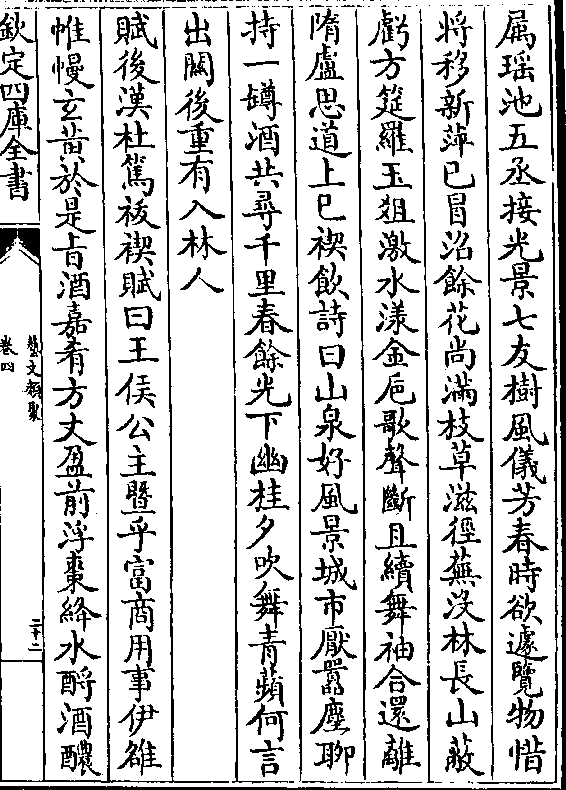 屬瑶池五丞接光景七友樹風儀芳春時欲遽覽物惜
將移新萍已冒沼餘花尚滿枝草滋徑蕪没林長山蔽
虧方筵羅玉俎激水漾金巵歌聲斷且續舞袖合還離
隋盧思道上巳禊飲詩曰山泉好風景城市厭囂塵聊
持一罇酒共尋千里春餘光下幽桂夕吹舞青蘋何言
出關後重有入林人
賦後漢杜篤祓禊賦曰王侯公主暨乎富商用事伊雒
帷幔玄黄於是㫖酒嘉肴方丈盈前浮棗絳水酹酒醲
欽定四庫全書
藝文類聚
卷四
二十二